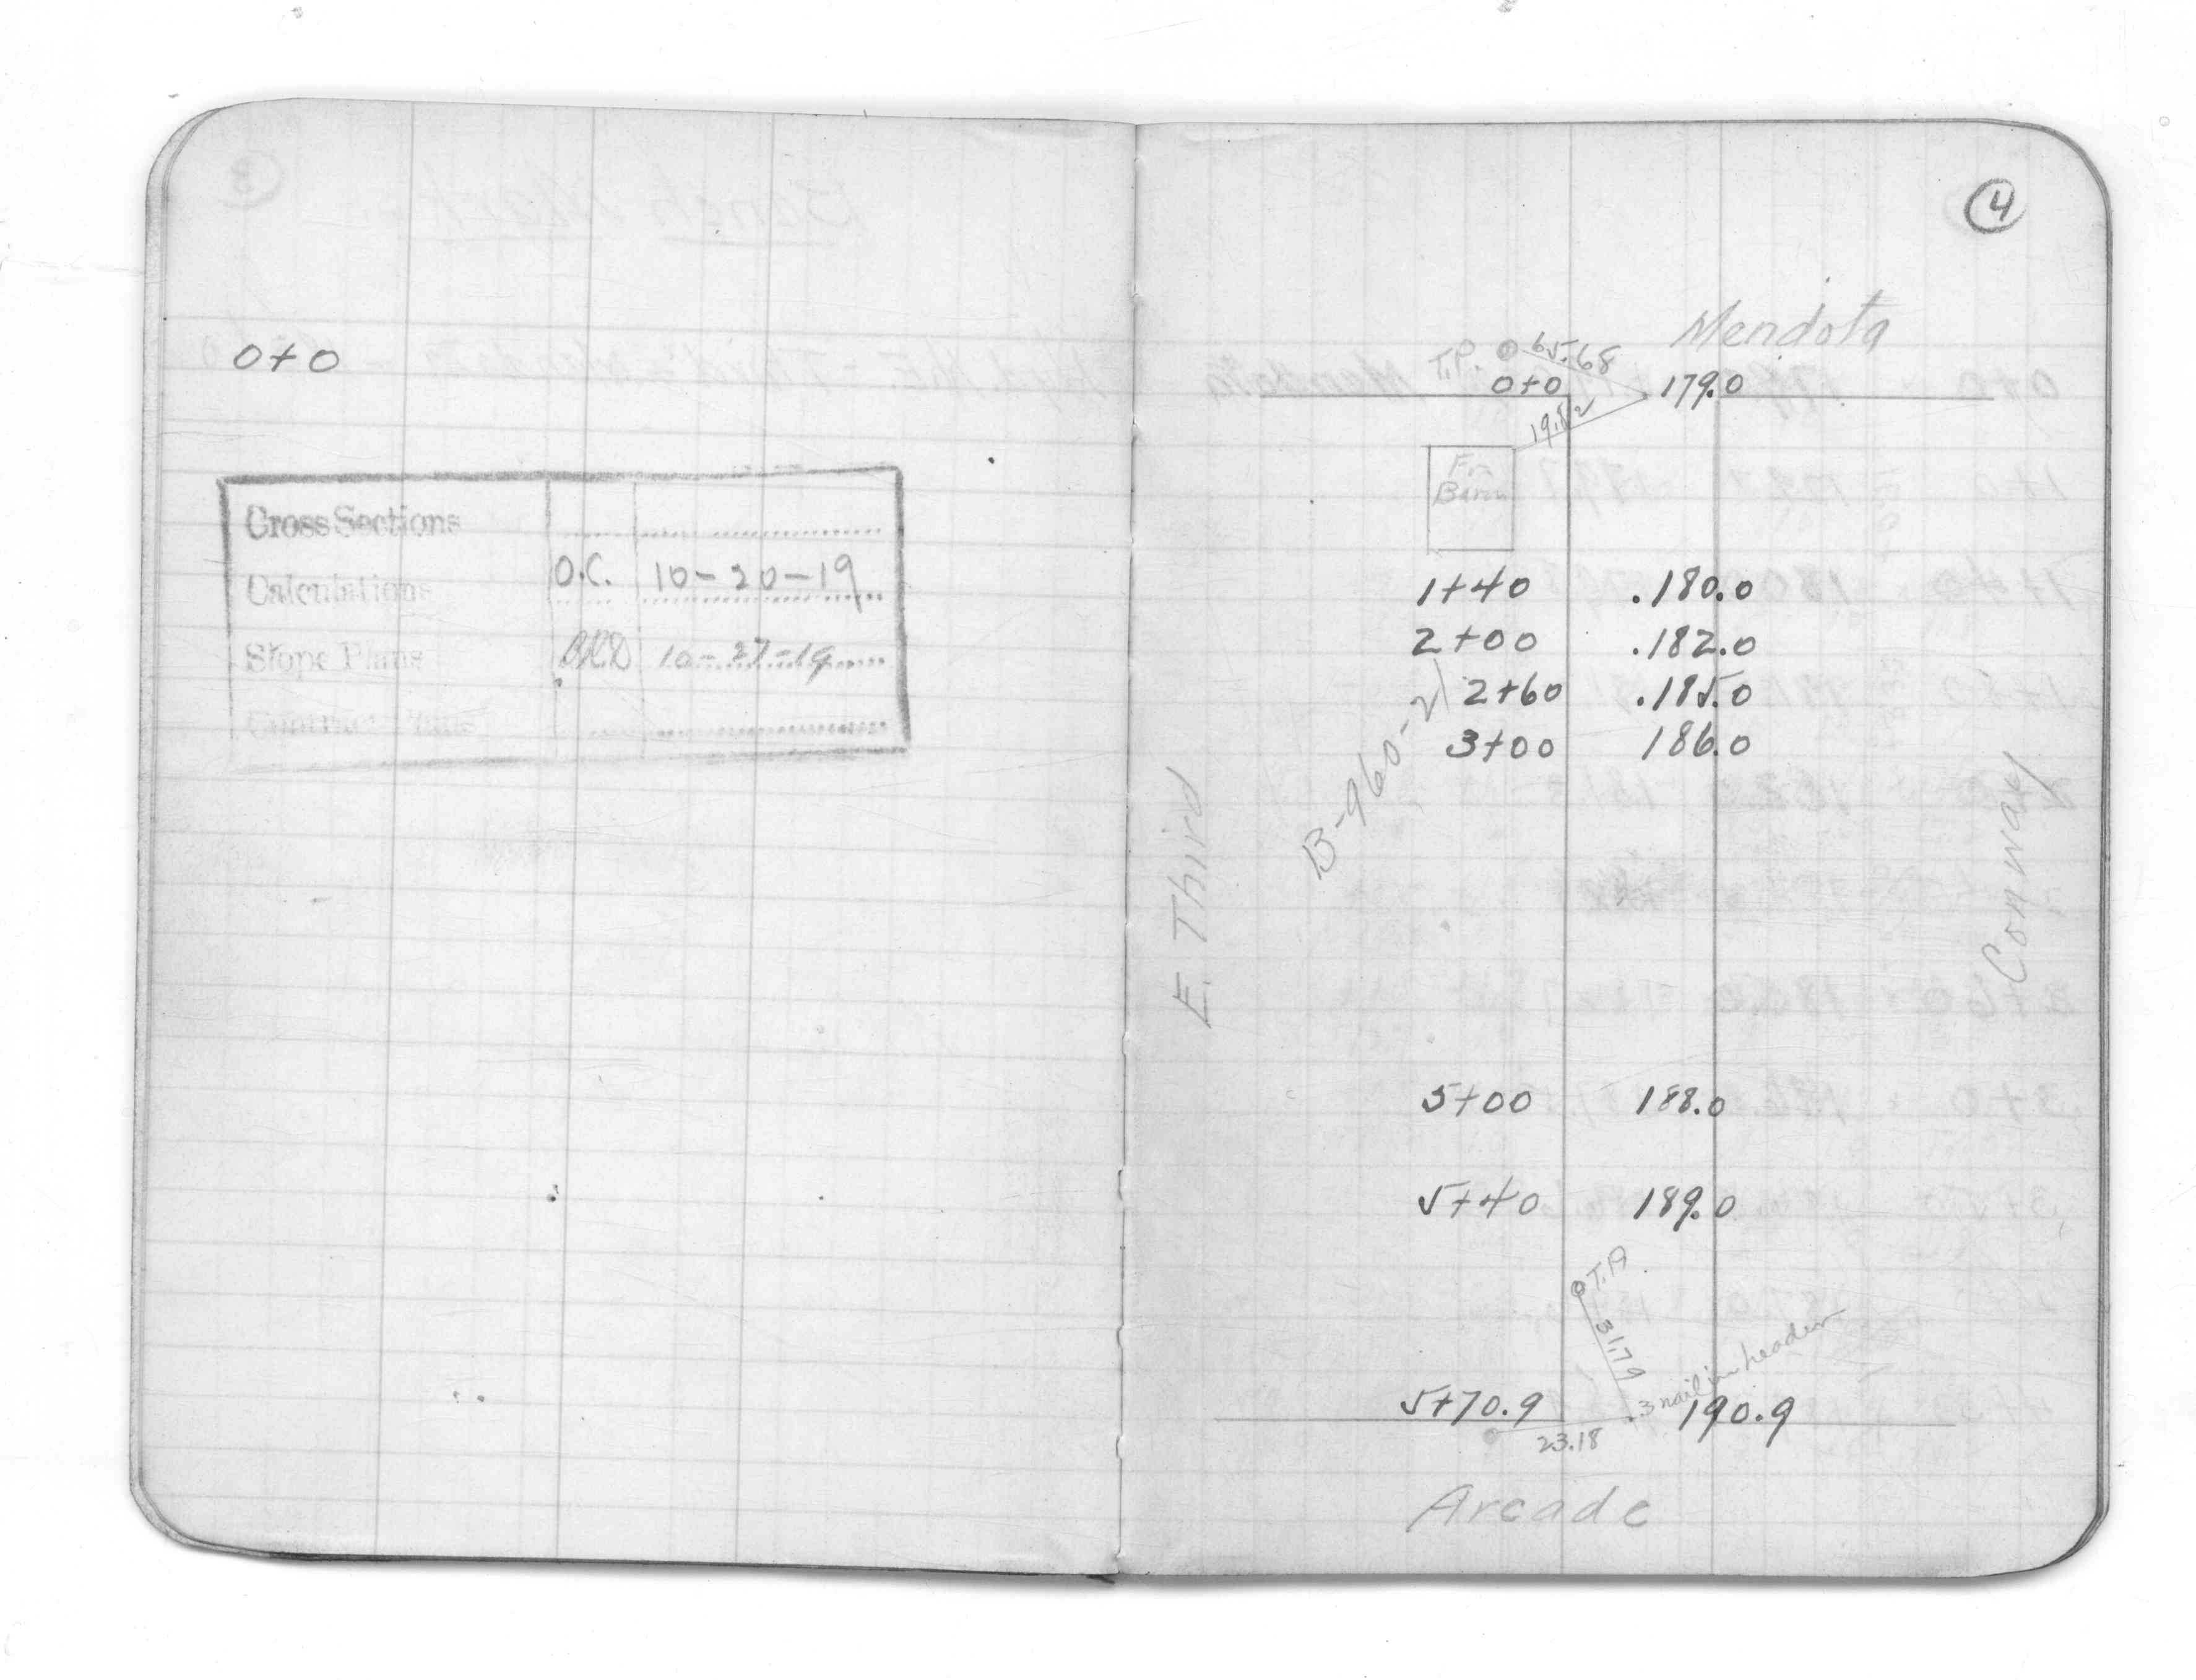 0+0
Cross Sections
Calculations O.C. 10-20-19
Slope Plans 10-27-19
4
Mendota
T.P. 65.68
0+0 179.0
19.82
Fr.
Barn
1+40 .180.0
2+00 .182.0
2+60 .185.0
3+00 186.0
B-960-21
E. Third
Conway
5+00 188.0
5+40 189.0
T.P.
31.79
3 nail in header
5+70.9 190.9
23.18
Arcade